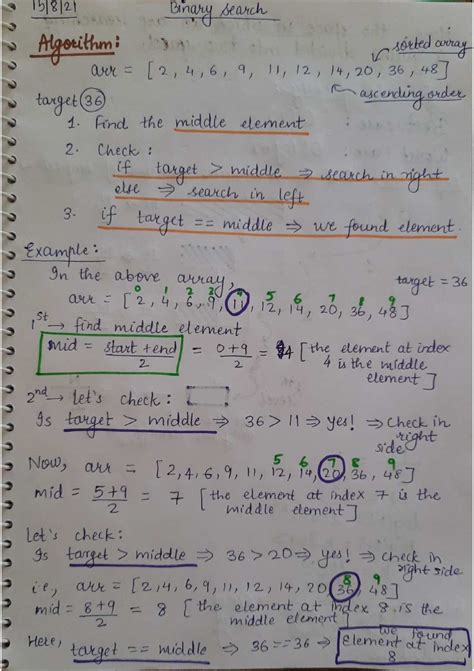 15/8/21 Binary search
Algorithm:
sorted array
arr = [2, 4, 6, 9, 11, 12, 14, 20, 36, 48]
ascending order
target 36
1. Find the middle element
2. Check :
if target > middle ⇒ search in right
else ⇒ search in left
3. if target == middle ⇒ we found element.
Example:
In the above array, target = 36
0 1 2 3 4 5 6 7 8 9
arr = [2, 4, 6, 9, 11, 12, 14, 20, 36, 48]
1st → find middle element
mid = start + end / 2 = 0+9 / 2 = 4 [the element at index
4 is the middle
element]
2nd → let's check :
Is target > middle ⇒ 36 > 11 ⇒ yes! ⇒ check in
right
side
5 6 7 8 9
Now, arr = [2, 4, 6, 9, 11, 12, 14, 20, 36, 48]
mid = 5+9 / 2 = 7 [the element at index 7 is the
middle element]
Let's check:
Is target > middle ⇒ 36 > 20 ⇒ yes! ⇒ check in
right side
8 9
i.e, arr = [2, 4, 6, 9, 11, 12, 14, 20, 36, 48]
mid = 8+9 / 2 = 8 [the element at index 8 is the
middle element]
Here, target == middle ⇒ 36 == 36 ⇒ we found
element at index
8